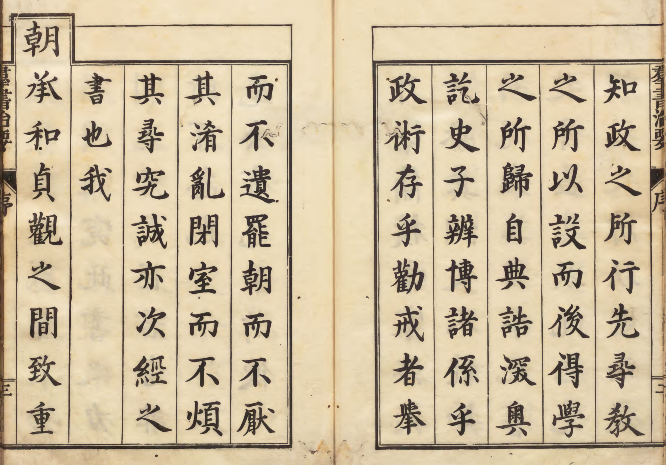 羣書治要 序
知政之所行先尋教
之所以設而後得學
之所歸自典誥深奧
訖史子辨博諸係乎
政術存乎勸戒者舉
而不遺罷朝而不厭
其淆亂閉室而不煩
其尋究誠亦次經之
書也我
朝承和貞觀之間致重
羣書治要 序 三